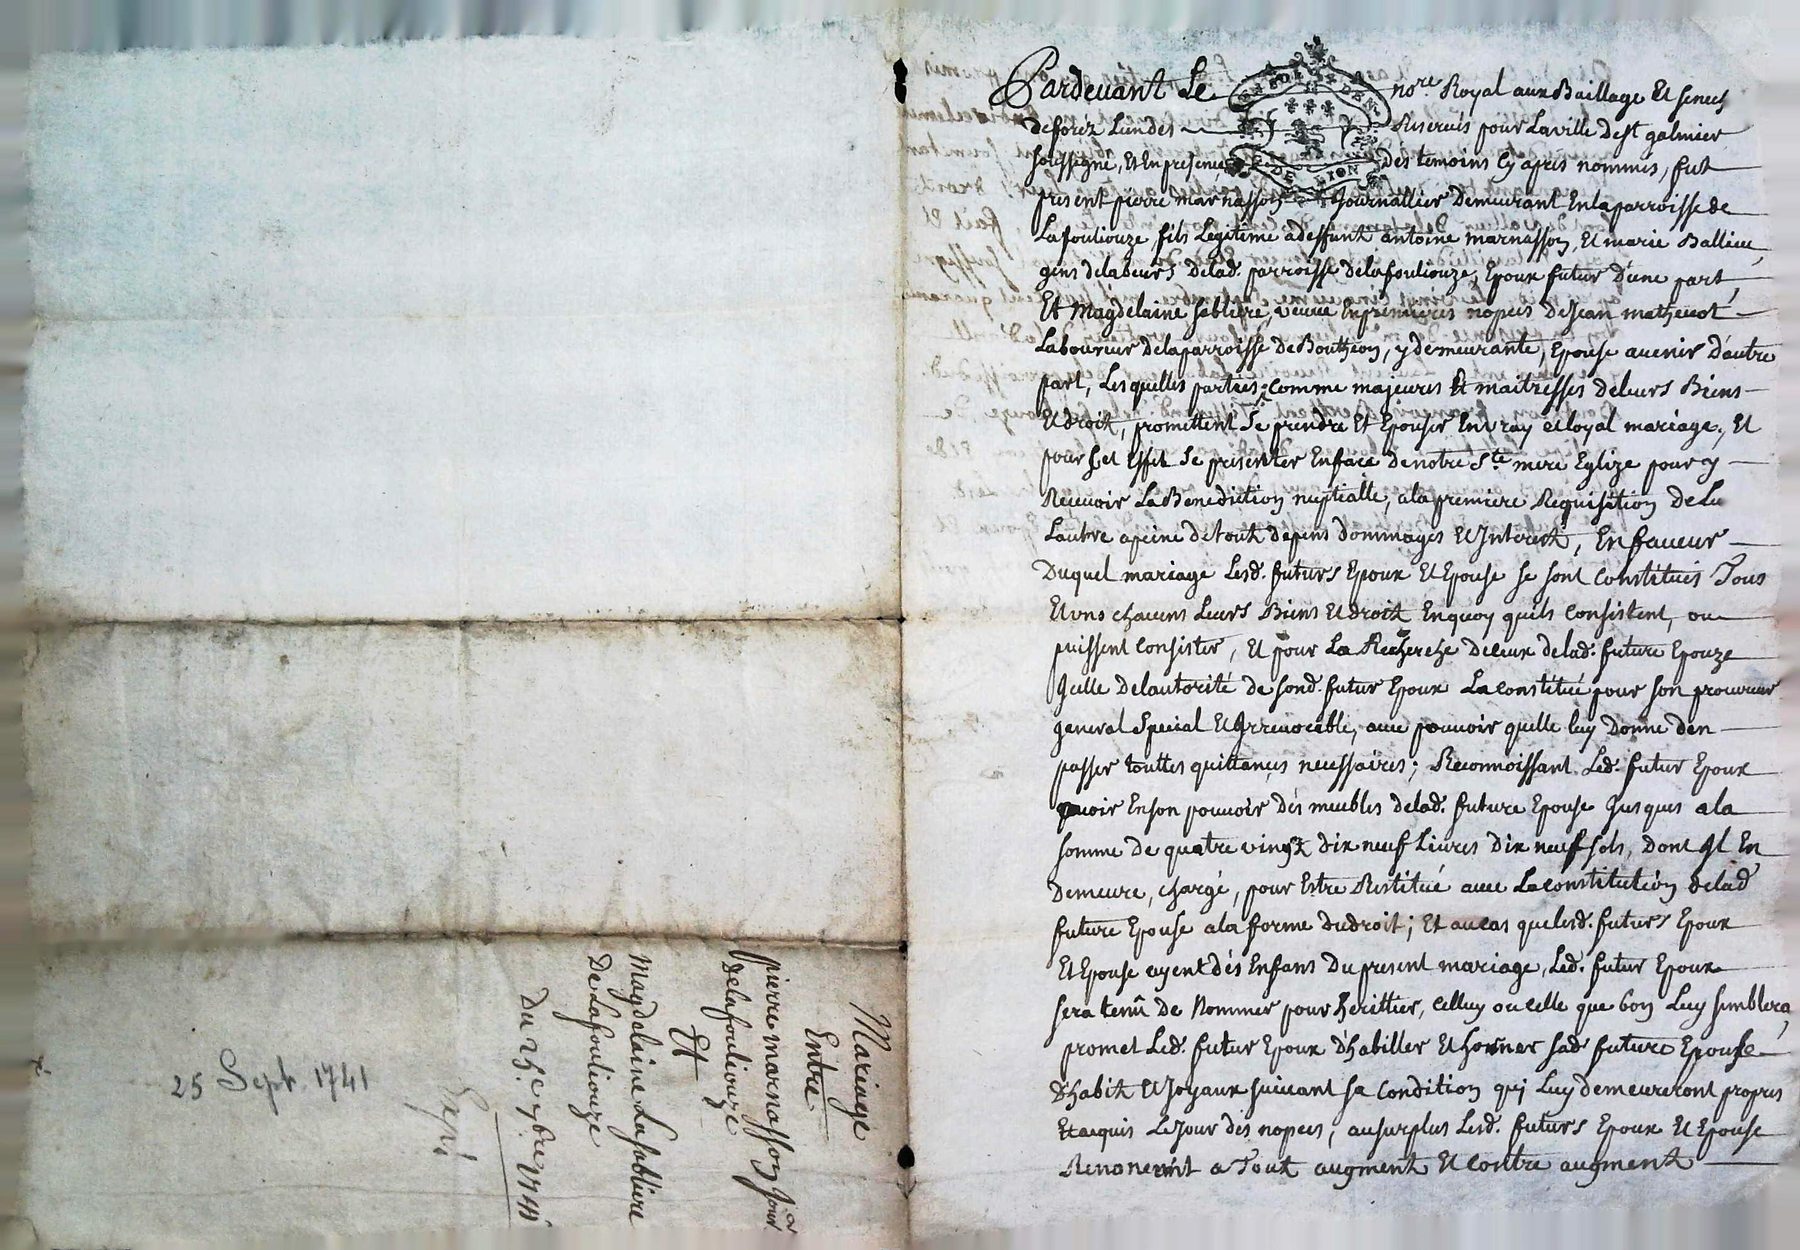 Mariage
Entre
pierre marnasson Jour
delafouliouze
Et
Magdelaine Lasabliere
De Lafouliouze
Du 25.e 7bre 1741
Expé
25 Sept. 1741
Pardevant Le nore. Royal aux Baillage Et senes
deforéz Lundes Reservés pour Laville de st galmier
soussigné, Et En presence des temoins cy apres nommés, fut
present pierre marnasson Journallier Demeurant Enlaparroisse de
Lafouliouze fils Legitime a deffunt antoine marnasson, Et marie Ballieu
gens delabeurs delad. parroisse delafouliouze, Epoux futur D'une part,
Et Magdelaine sabliere, veuve Enpremieres nopces de Jean mathevot
Laboureur delaparroisse de Boutheon, y demeurante, Epouse avenir D'autre
part, Lesquelles parties, comme majeures Et maitresses deleurs Biens
Et droit, promettent Se prendre Et Epouser En vray et loyal mariage, Et
pour Cet Effet Se presenter Enface denotre Ste. mere Eglize pour y
Recevoir La Benediction nuptialle, ala premiere Requisition de Lu
Lautre apeine detout depens dommages Et Interest, En faveur
Duquel mariage Lesd. futurs Epoux Et Epouse se sont constitués Tous
Et uns chacuns Leurs Biens Et droit Enquoy quils consistent, ou
puissent consister, Et pour La Recherche deceux delad. future Epouze
Jcelle delautorité de sond. futur Epoux La constitué pour son procureur
general Special Et Irrevocable, avec pouvoir quelle luy Donne den
passer touttes quittances necessaires; Reconnoissant Led. futur Epoux
avoir Enson pouvoir dés meubles delad. future Epouse Jusques ala
somme de quatre vingt dix neuf Livres dix neuf sols, dont Il En
demeure, chargé, pour Estre Restitué avec La constitution delad
future Epouse ala forme dudroit; Et aucas quelesd. futurs Epoux
Et Epouse ayent dés Enfans Du present mariage, Led. futur Epoux
sera tenû de Nommer pour herittier, celluy ou celle que bon Luy semblera,
promet Led. futur Epoux d'habiller Et horner sad. future Epouse
d'habit Et Joyaux suivant sa condition qui Luy demeureront propres
Et acquis Le Jour dés nopces, ausurplus Lesd. futurs Epoux Et Epouse
Renoncent a Tout augment Et contre augment